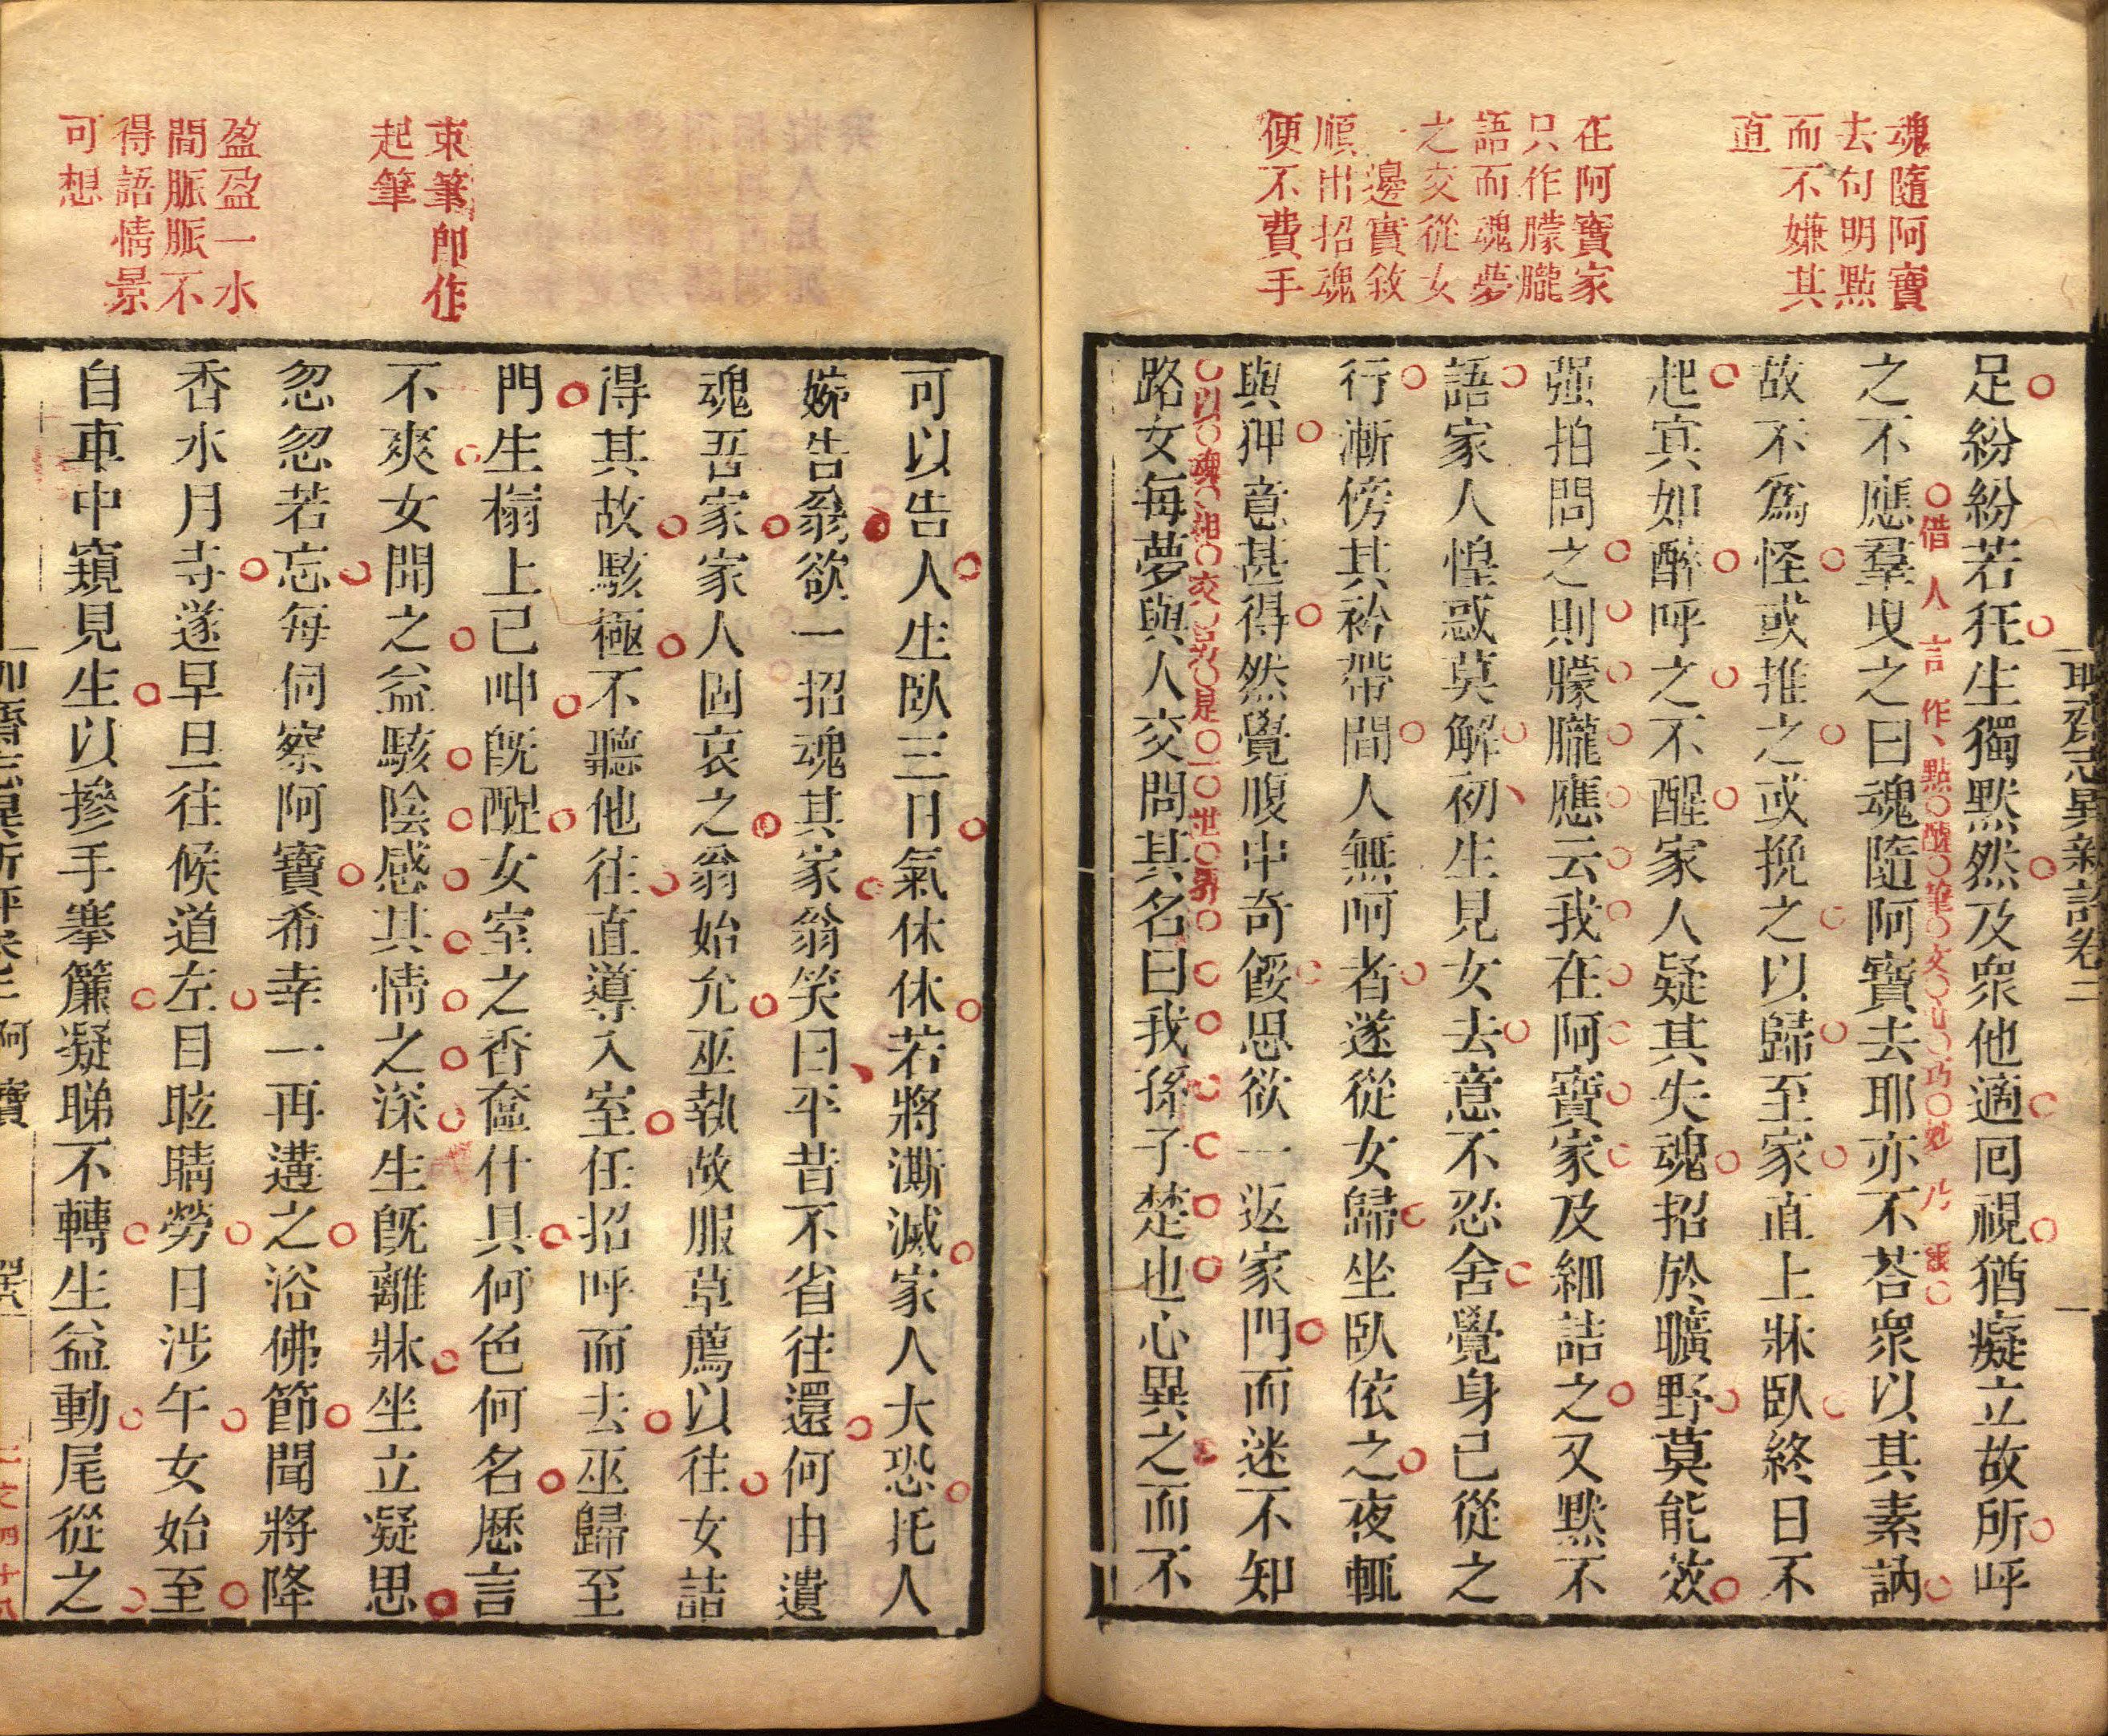 魂隨阿寶
去句明點
而不嫌其
直
在阿寶家
只作朦朧
語而魂夢
之交從女
一邊實敘
順出招魂
便不費手
聊齋志異新評卷二
足紛紛若狂生獨默然及衆他適回視猶癡立故所呼
之不應羣曳之曰魂隨阿寶去耶亦不荅衆以其素訥
借人言作點醒筆文
巧妙乃爾
故不爲怪或推之或挽之以歸至家直上牀臥終日不
起冥如醉呼之不醒家人疑其失魂招於曠野莫能效
强拍問之則朦朧應云我在阿寶家及細詰之又默不
語家人惶惑莫解初生見女去意不忍舍覺身已從之
行漸傍其衿帶間人無呵者遂從女歸坐臥依之夜輒
與狎意甚得然覺腹中奇餒思欲一返家門而迷不知
以魂相交另是一世界
路女每夢與人交問其名曰我孫子楚也心異之而不
束筆卽作
起筆
盈盈一水
間脈脈不
得語情景
可想
可以告人生臥三日氣休休若將澌滅家人大恐托人
婉告翁欲一招魂其家翁笑曰平昔不省往還何由遺
魂吾家家人固哀之翁始允巫執故服草薦以往女詰
得其故駭極不聽他往直導入室任招呼而去巫歸至
門生榻上已呻既醒女室之香奩什具何色何名歷言
不爽女聞之益駭陰感其情之深生既離牀坐立凝思
忽忽若忘每伺察阿寶希幸一再遘之浴佛節聞將降
香水月寺遂早旦往候道左目眩睛勞日涉午女始至
自車中窺見生以摻手搴簾凝睇不轉生益動尾從之
聊齋志異新評卷二 阿寶